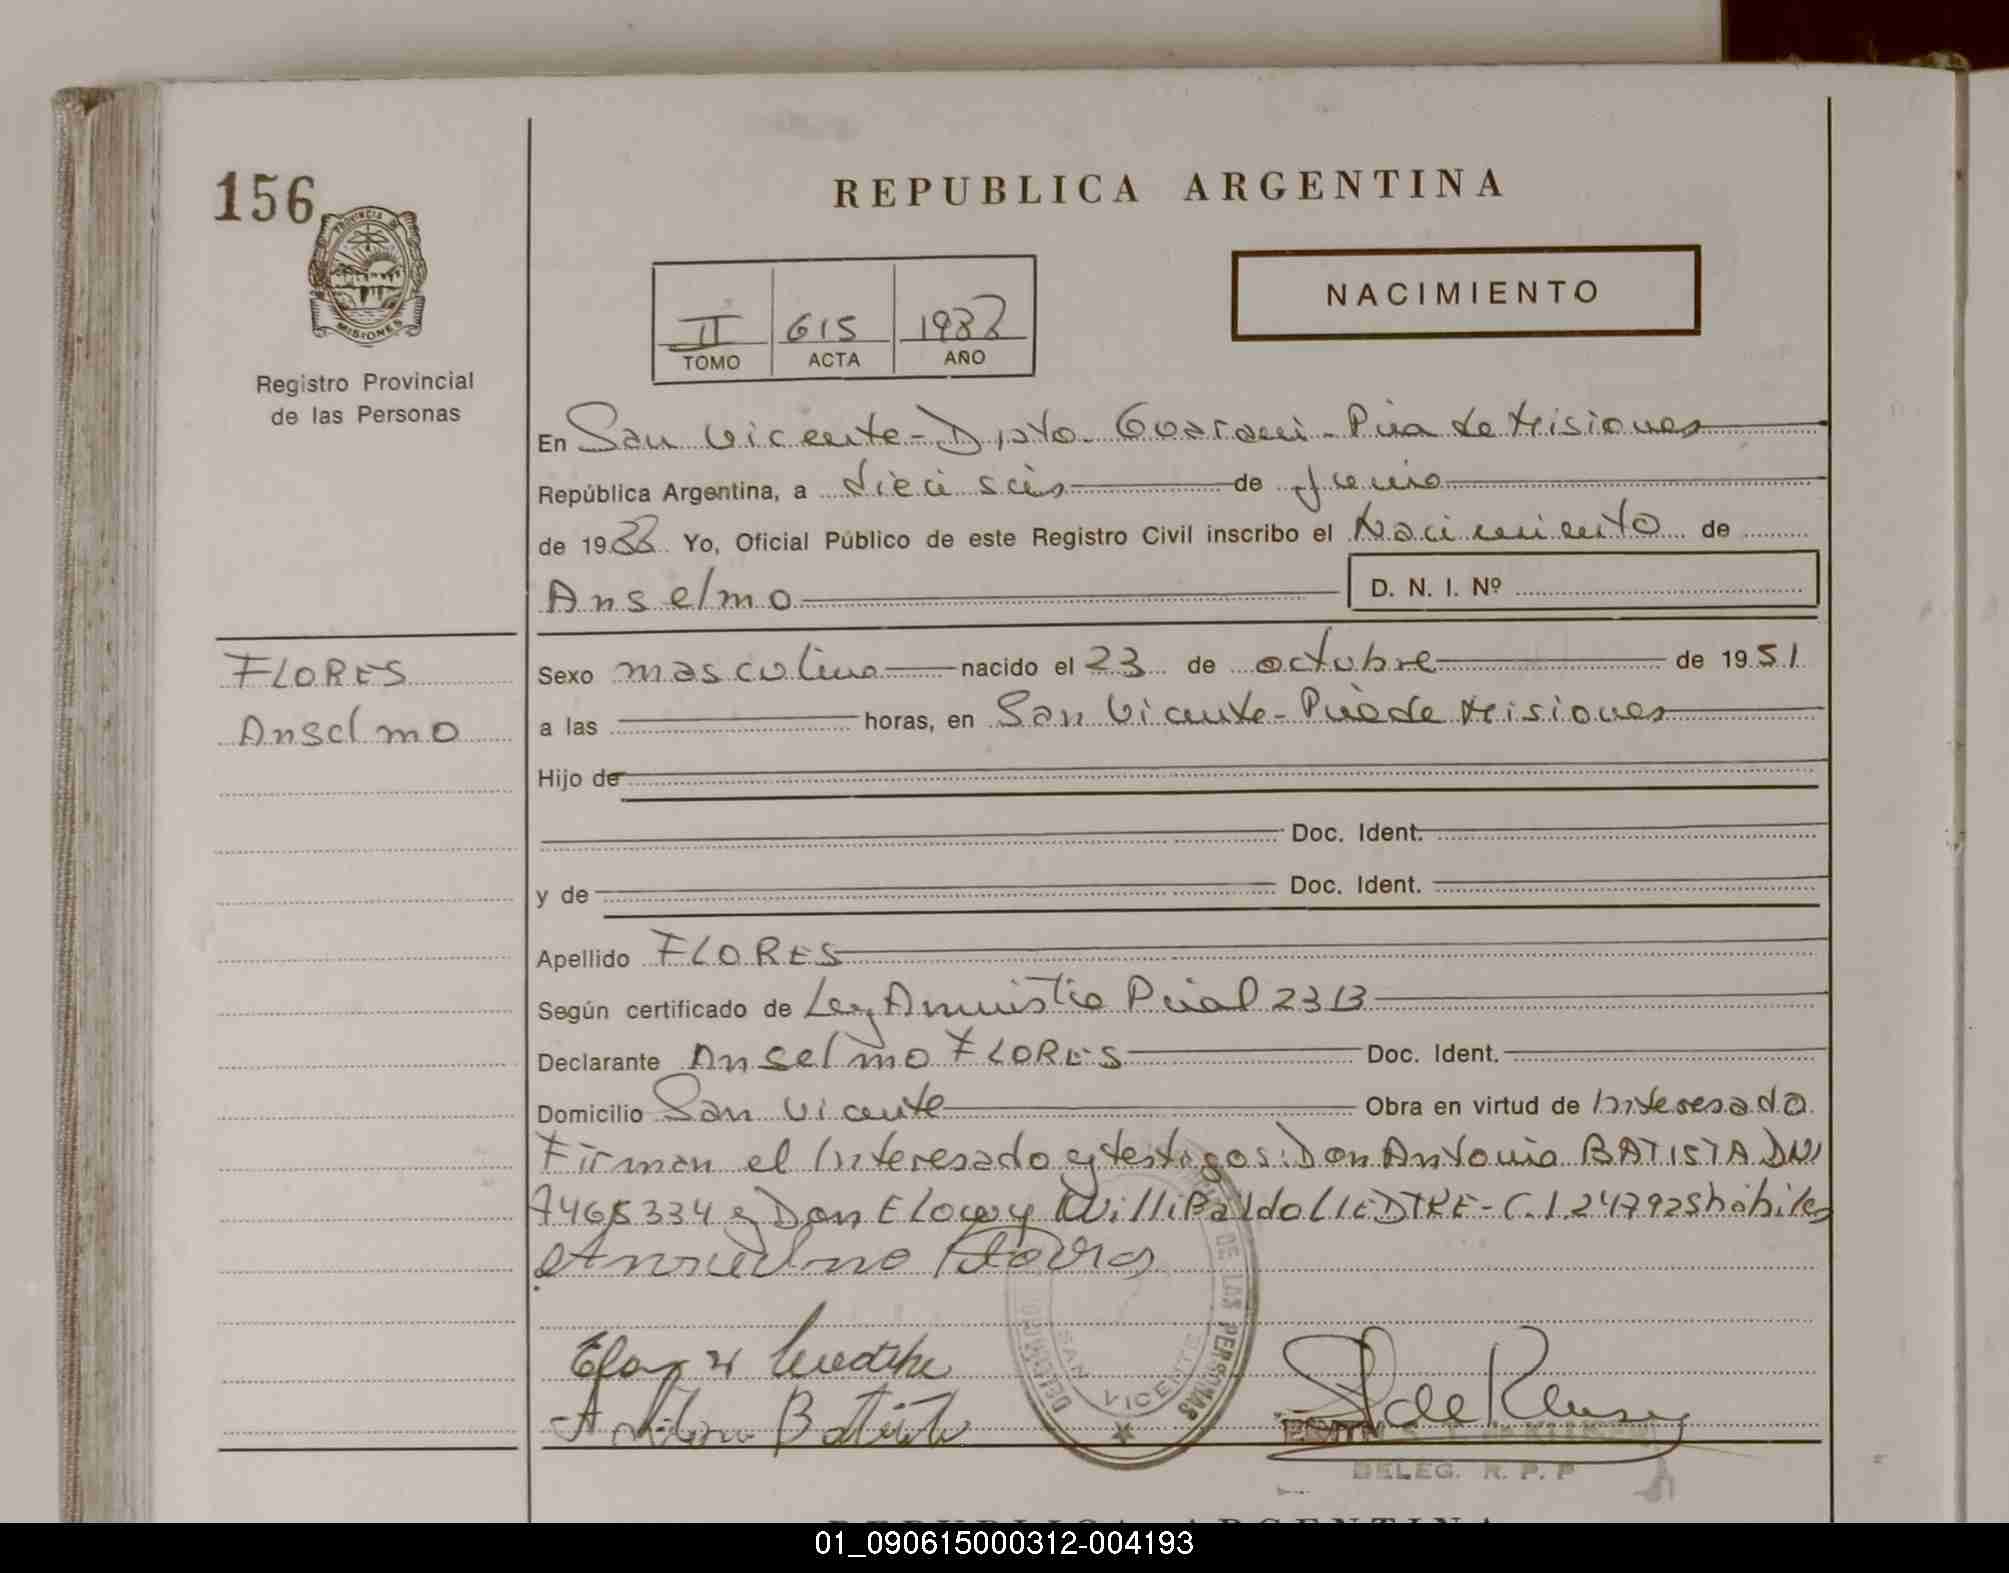 156
PROVINCIA DE
MISIONES
Registro Provincial
de las Personas
REPUBLICA ARGENTINA
II 615 1988
TOMO ACTA AÑO
NACIMIENTO
En San Vicente - Dpto. Guarani - Pcia de Misiones
República Argentina, a dieciseis de Junio
de 1988 Yo, Oficial Público de este Registro Civil inscribo el Nacimiento de
Anselmo D. N. I. Nº
FLORES
Anselmo
Sexo masculino nacido el 23 de octubre de 1951
a las horas, en San Vicente - Pcia de Misiones
Hijo de
Doc. Ident.
y de Doc. Ident.
Apellido FLORES
Según certificado de Ley Amnistia Pcial 2313
Declarante Anselmo FLORES Doc. Ident.
Domicilio San Vicente Obra en virtud de Interesado
Firman el Interesado y testigos: Don Antonio BATISTA DNI
7465334 y Don Eloy Willibaldo - C.I. 247925 hábiles
Anselmo Flores
DE LAS PERSONAS
SAN VICENTE
Antonio Batista
DELEG. R. P. P
REPUBLICA ARGENTINA
01_090615000312-004193